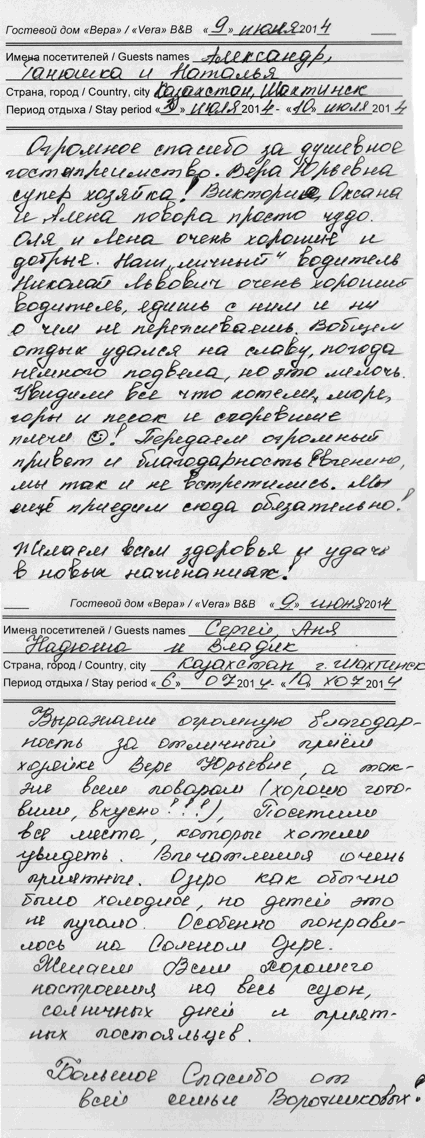 Гостевой дом «Вера» / «Vera» B&B « 9 » июня 2014
Имена посетителей / Guests names Александр,
Танюшка и Наталья
Страна, город / Country, city Казахстан, Шахтинск
Период отдыха / Stay period « » июля 2014 - «10» июля 2014
Огромное спасибо за душевное
гостеприимство. Вера Юрьевна
супер хозяйка! Виктория, Оксана
и Алена повора просто чудо.
Оля и Лена очень хорошие и
добрые. Наш „личный" водитель
Николай Львович очень хороший
водитель, едишь с ним и ни
о чем не переживаешь. Вобщем
отдых удался на славу, погода
немного подвела, но это мелочь.
Увидили все что хотели, море,
горы и песок и сгоревшие
плечи ☺! Передаем огромный
привет и благодарность Евгению,
мы так и не встретились. Мы
ещё приедим сюда обезательно!
Желаем всем здоровья и удачи
в новых начинаниях!
Гостевой дом «Вера» / «Vera» B&B « 9 » июня 2014
Имена посетителей / Guests names Сергей, Аня
Надюша и Владик
Страна, город / Country, city Казахстан г. Шахтинск
Период отдыха / Stay period « 6 » 07 2014 - «10» 07 2014
Выражаем огромную благодар-
ность за отличный приём
хозяйке Вере Юрьевне, а так-
же всем поварам (хорошо гото-
вили, вкусно!!!), Посетили
все места, которые хотели
увидеть. Впечатления очень
приятные. Озеро как обычно
было холодное, но детей это
не пугало. Особенно понрави-
лось на Соленом Озере.
Желаем Всем хорошего
настроения на весь сезон,
солнечных дней и прият-
ных постояльцев.
Большое Спасибо от
всей семьи Воротниковых!